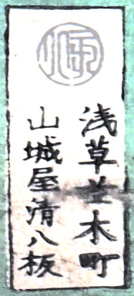 浅草並木町
山城屋清八板